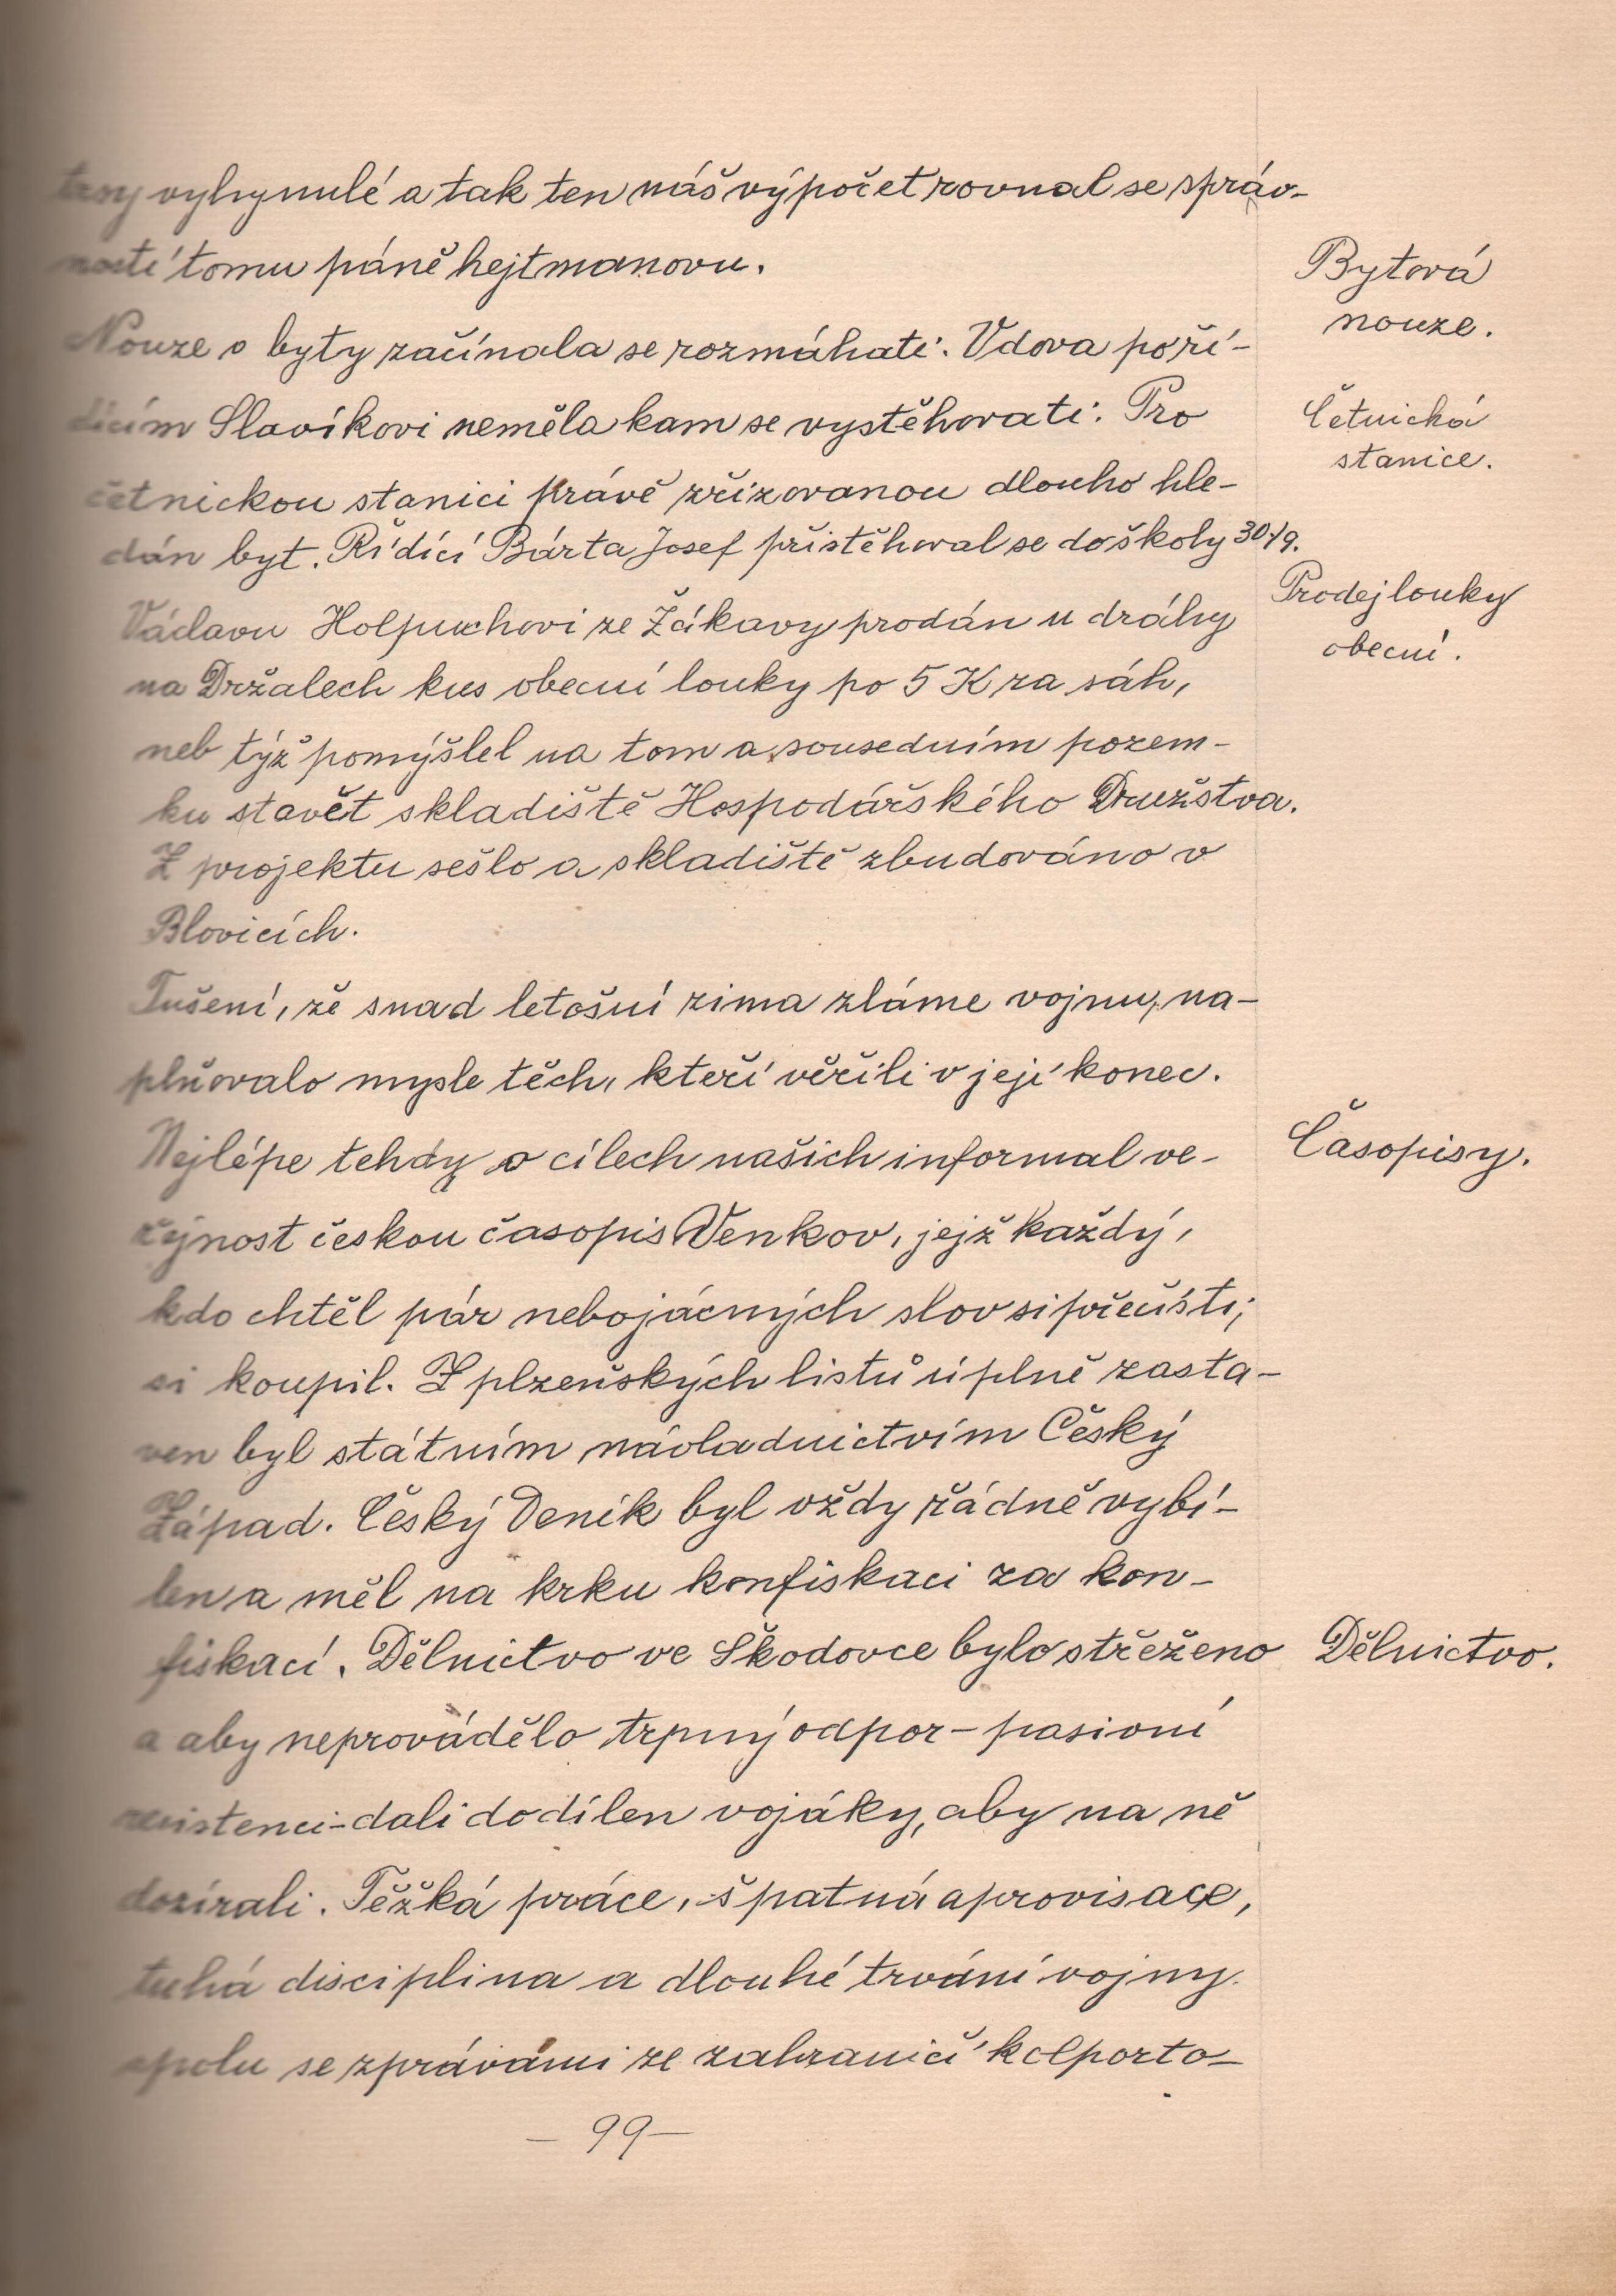 vyhynulé a tak ten náš výpočet rovnal se správ-
ností tomu páně hejtmanovu.
Bytová
nouze.
Nouze o byty začínala se rozmáhati. Vdova po ří-
dícím Slavíkovi neměla kam se vystěhovati. Pro
Četnická
stanice.
četnickou stanici právě zřizovanou dlouho hle-
dán byt. Řídící Bárta Josef přistěhoval se do školy 30/9.
Prodej louky
obecní.
Václavu Holpuchovi ze Žákavy prodán u dráhy
na Držalech kus obecní louky po 5 K za sáh,
neb týž pomýšlel na tom a sousedním pozem-
ku stavět skladiště Hospodářského Družstva.
Z projektu sešlo a skladiště zbudováno v
Blovicích.
Tušení, že snad letošní zima zláme vojnu, na-
plňovalo mysle těch, kteří věřili v její konec.
Časopisy.
Nejlépe tehdy o cílech našich informal ve-
řejnost českou časopis Venkov, jejž každý,
kdo chtěl pár nebojácných slov si přečísti,
si koupil. Z plzeňských listů úplně zasta-
ven byl státním návladnictvím Český
Západ. Český Deník byl vždy řádně vybí-
len a měl na krku konfiskaci za kon-
fiskací. Dělnictvo ve Škodovce bylo střeženo
Dělnictvo.
a aby neprovádělo trpný odpor – pasivní
resistenci – dali do dílen vojáky, aby na ně
dozírali. Těžká práce, špatná aprovisace,
tuhá disciplina a dlouhé trvání vojny
spolu se zprávámi ze zahraničí kolporto-
– 99 –